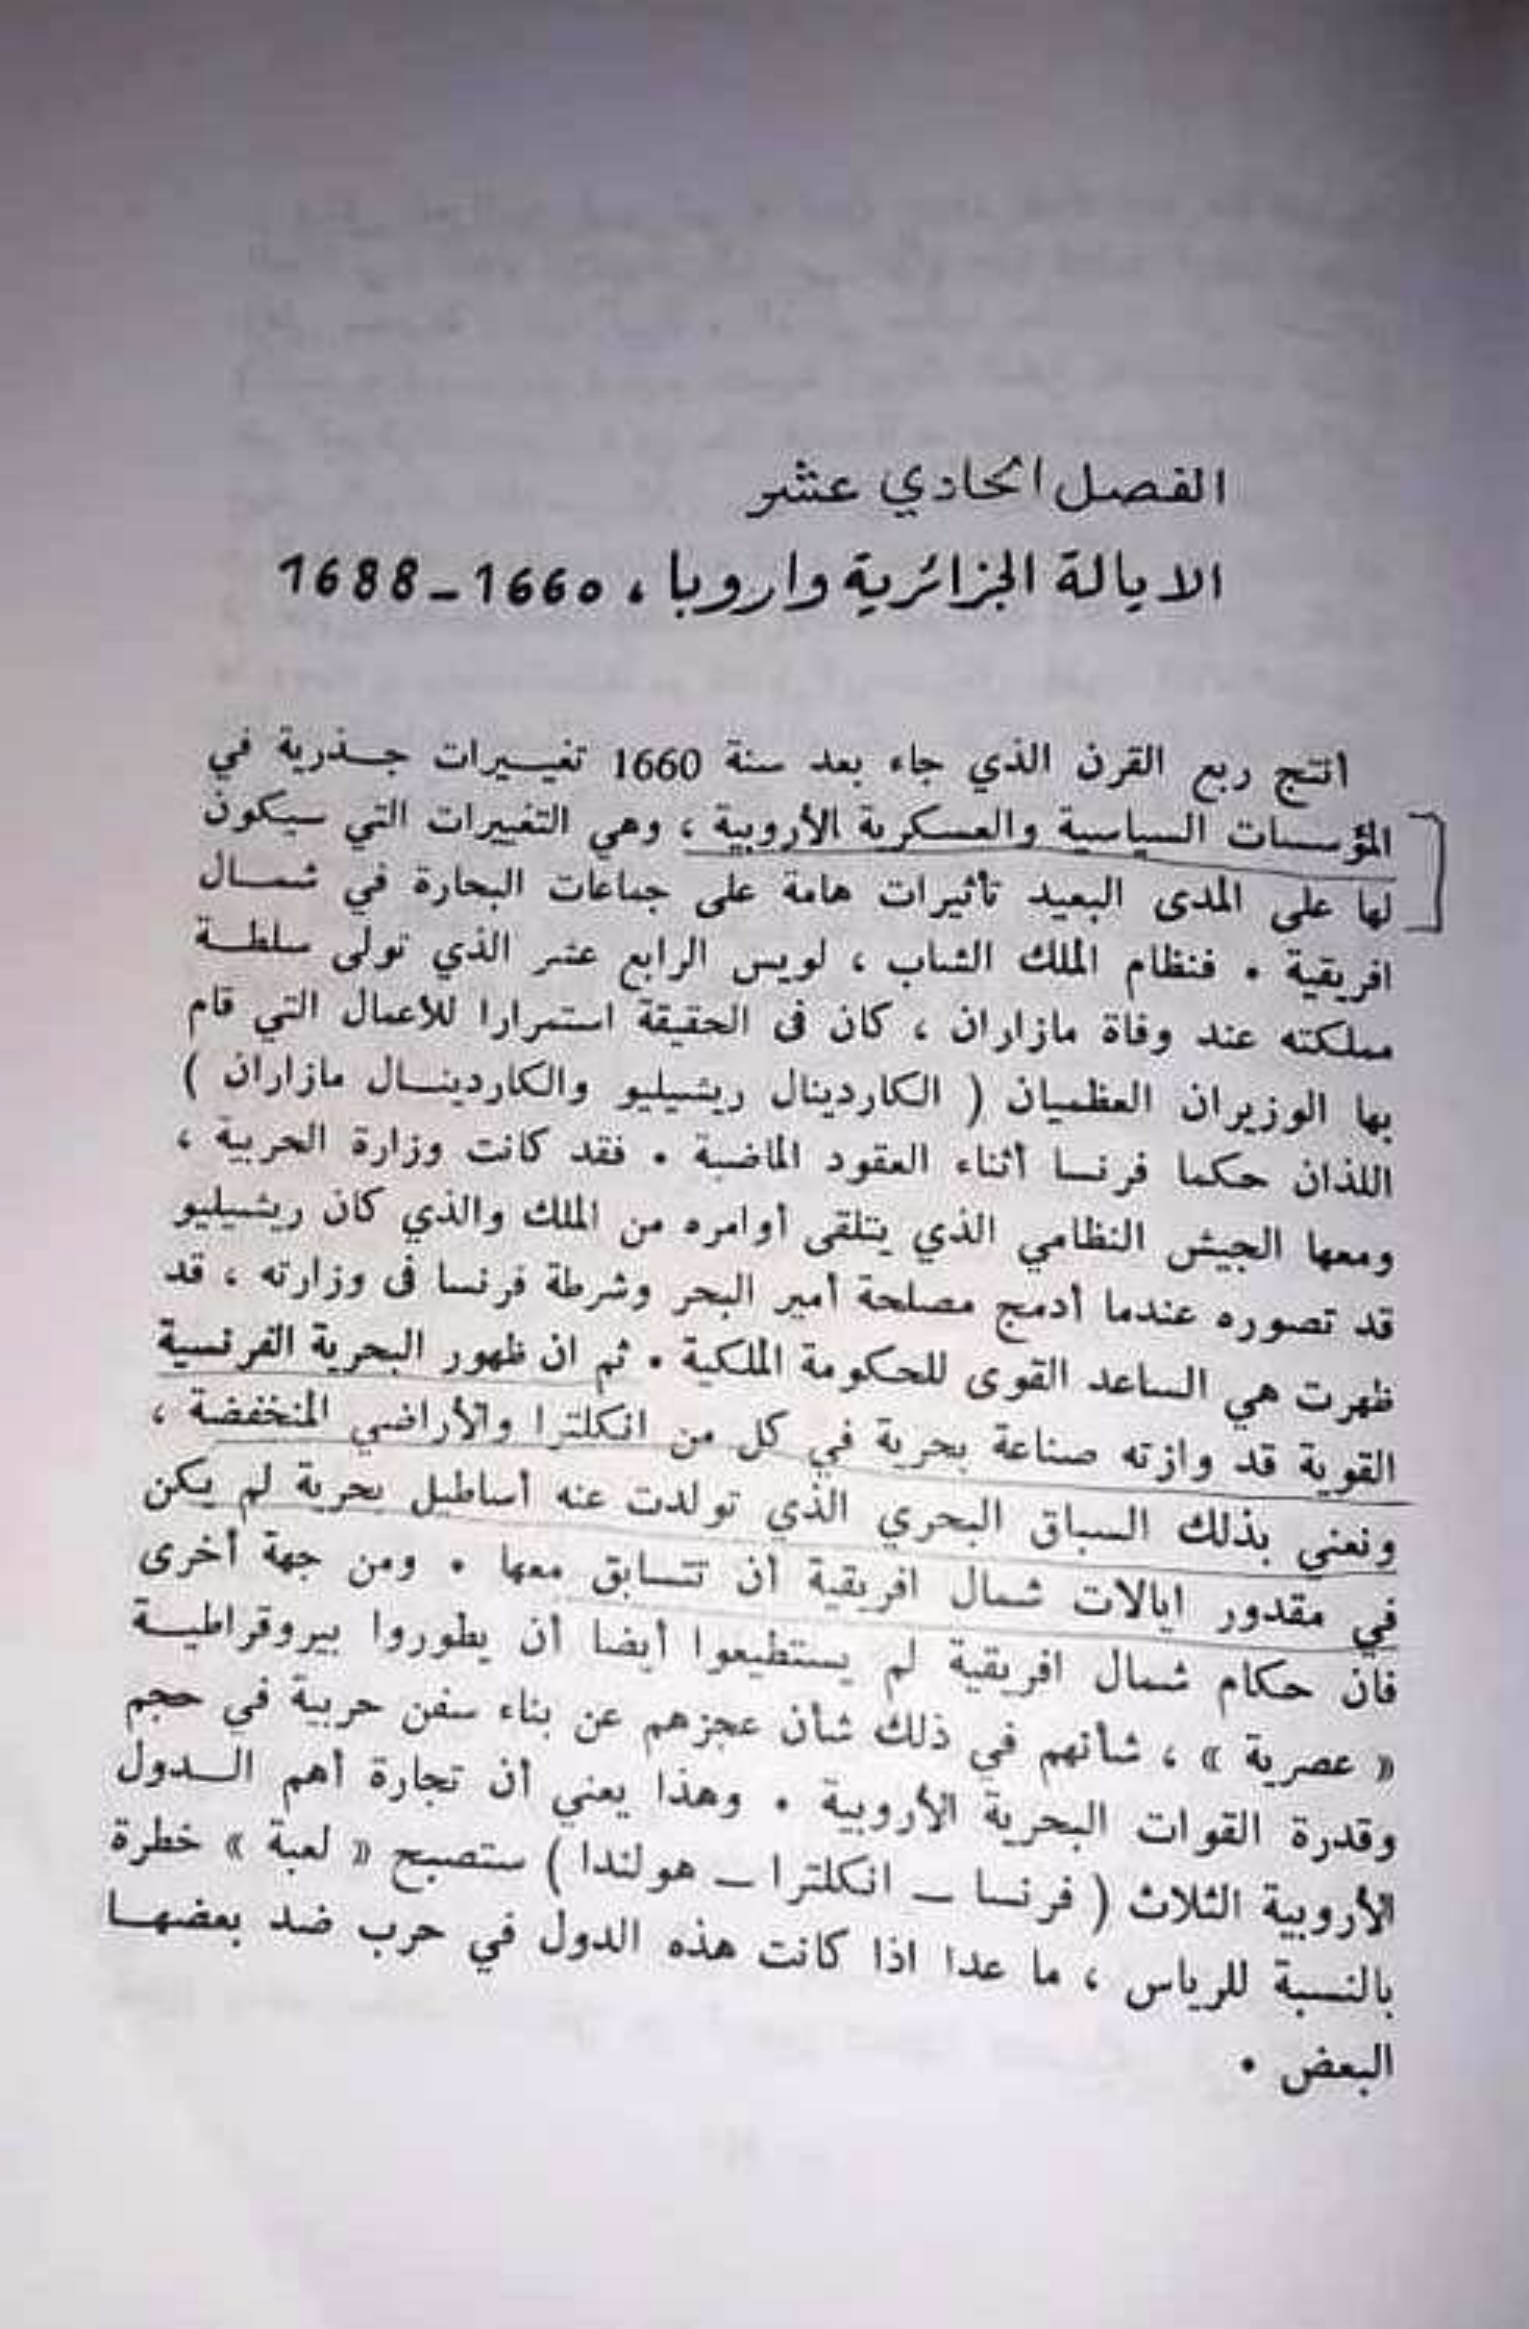 الفصل الحادي عشر
الايالة الجزائرية واروبا ، 1660-1688
أنتج ربع القرن الذي جاء بعد سنة 1660 تغييرات جذرية في
المؤسسات السياسية والعسكرية الأروبية ، وهي التغييرات التي سيكون
لها على المدى البعيد تأثيرات هامة على جماعات البحارة في شمال
افريقية . فنظام الملك الشاب ، لويس الرابع عشر الذي تولى سلطة
مملكته عند وفاة مازاران ، كان في الحقيقة استمرارا للأعمال التي قام
بها الوزيران العظميان ( الكاردينال ريشيليو والكاردينال مازاران )
اللذان حكما فرنسا أثناء العقود الماضية . فقد كانت وزارة الحربية ،
ومعها الجيش النظامي الذي يتلقى أوامره من الملك والذي كان ريشيليو
قد تصوره عندما أدمج مصلحة أمير البحر وشرطة فرنسا في وزارته ، قد
ظهرت هي الساعد القوى للحكومة الملكية . ثم ان ظهور البحرية الفرنسية
القوية قد وازته صناعة بحرية في كل من انكلترا والأراضي المنخفضة ،
ونعني بذلك السباق البحري الذي تولدت عنه أساطيل بحرية لم يكن
في مقدور ايالات شمال افريقية أن تتسابق معها . ومن جهة أخرى
فان حكام شمال افريقية لم يستطيعوا أيضا أن يطوروا بيروقراطية
« عصرية » ، شأنهم في ذلك شأن عجزهم عن بناء سفن حربية في حجم
وقدرة القوات البحرية الأروبية . وهذا يعني أن تجارة أهم الدول
الأروبية الثلاث ( فرنسا - انكلترا - هولندا ) ستصبح « لعبة » خطرة
بالنسبة للرياس ، ما عدا اذا كانت هذه الدول في حرب ضد بعضها
البعض .